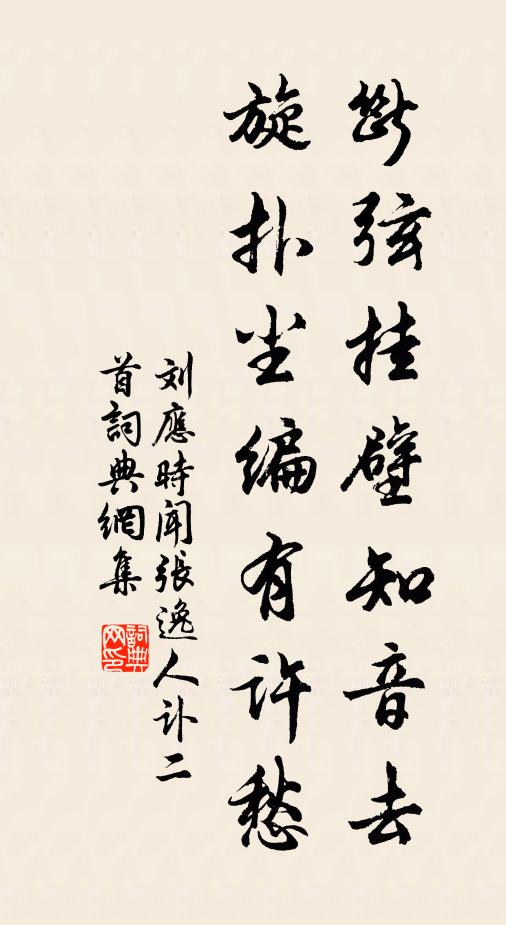 断弦挂壁知音去
旋扑尘编有许愁
刘應時聞張逸人讣二
首詞典網集
詞典网印